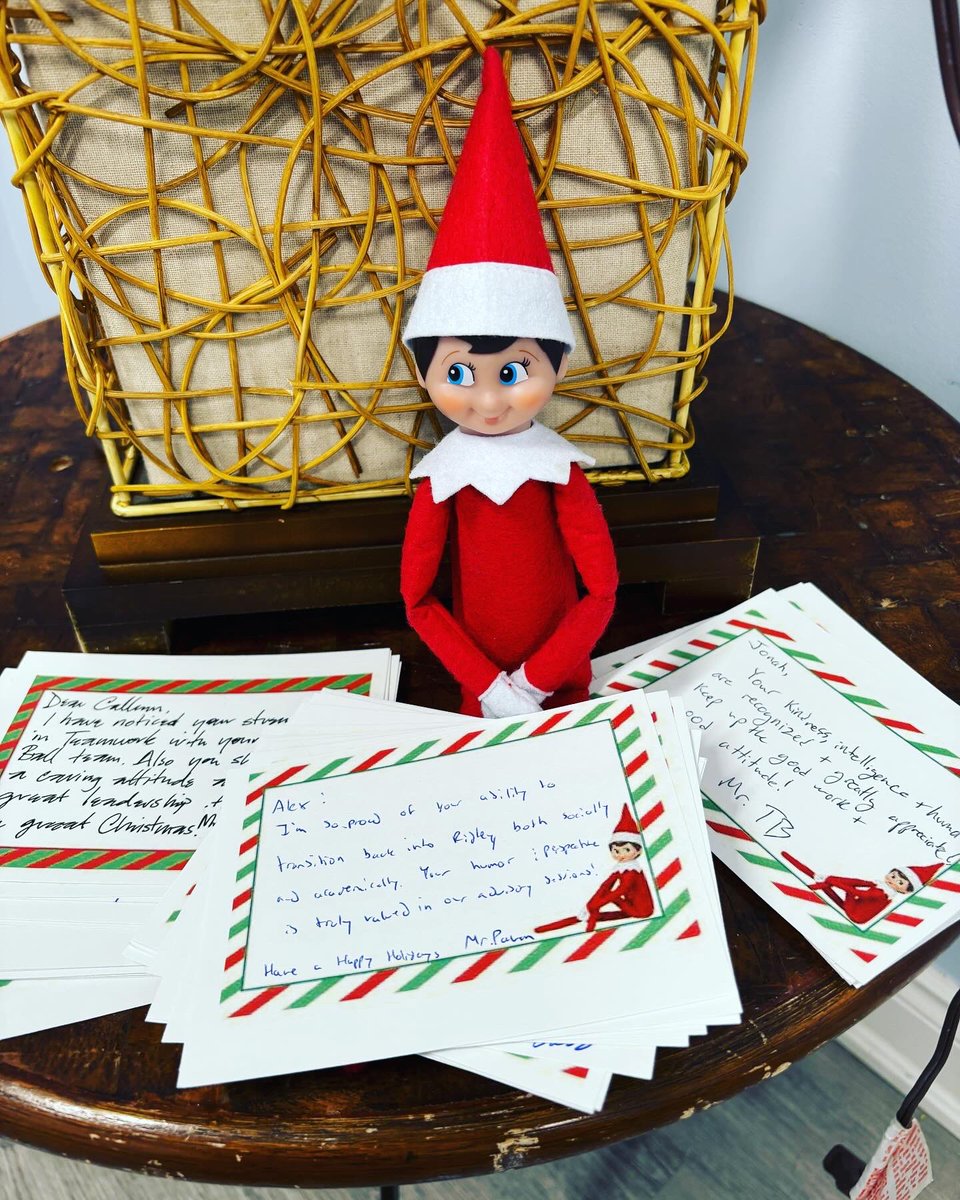 Dear Callenn,
I have noticed your stren
in Teamwork with your
Ball team. Also you sh
a caring attitude a
great leadership.
a great Christmas! Mr
Alex:
I'm so proud of your ability to
transition back into Ridley both socially
and academically. Your humor & perspective
is truly valued in our advisory sessions!
Have a Happy Holidays Mr.
Jonah,
Your kindness, intelligence + humor
are recognized + greatly appreciated
Keep up the good work +
good attitude!
Mr. TB